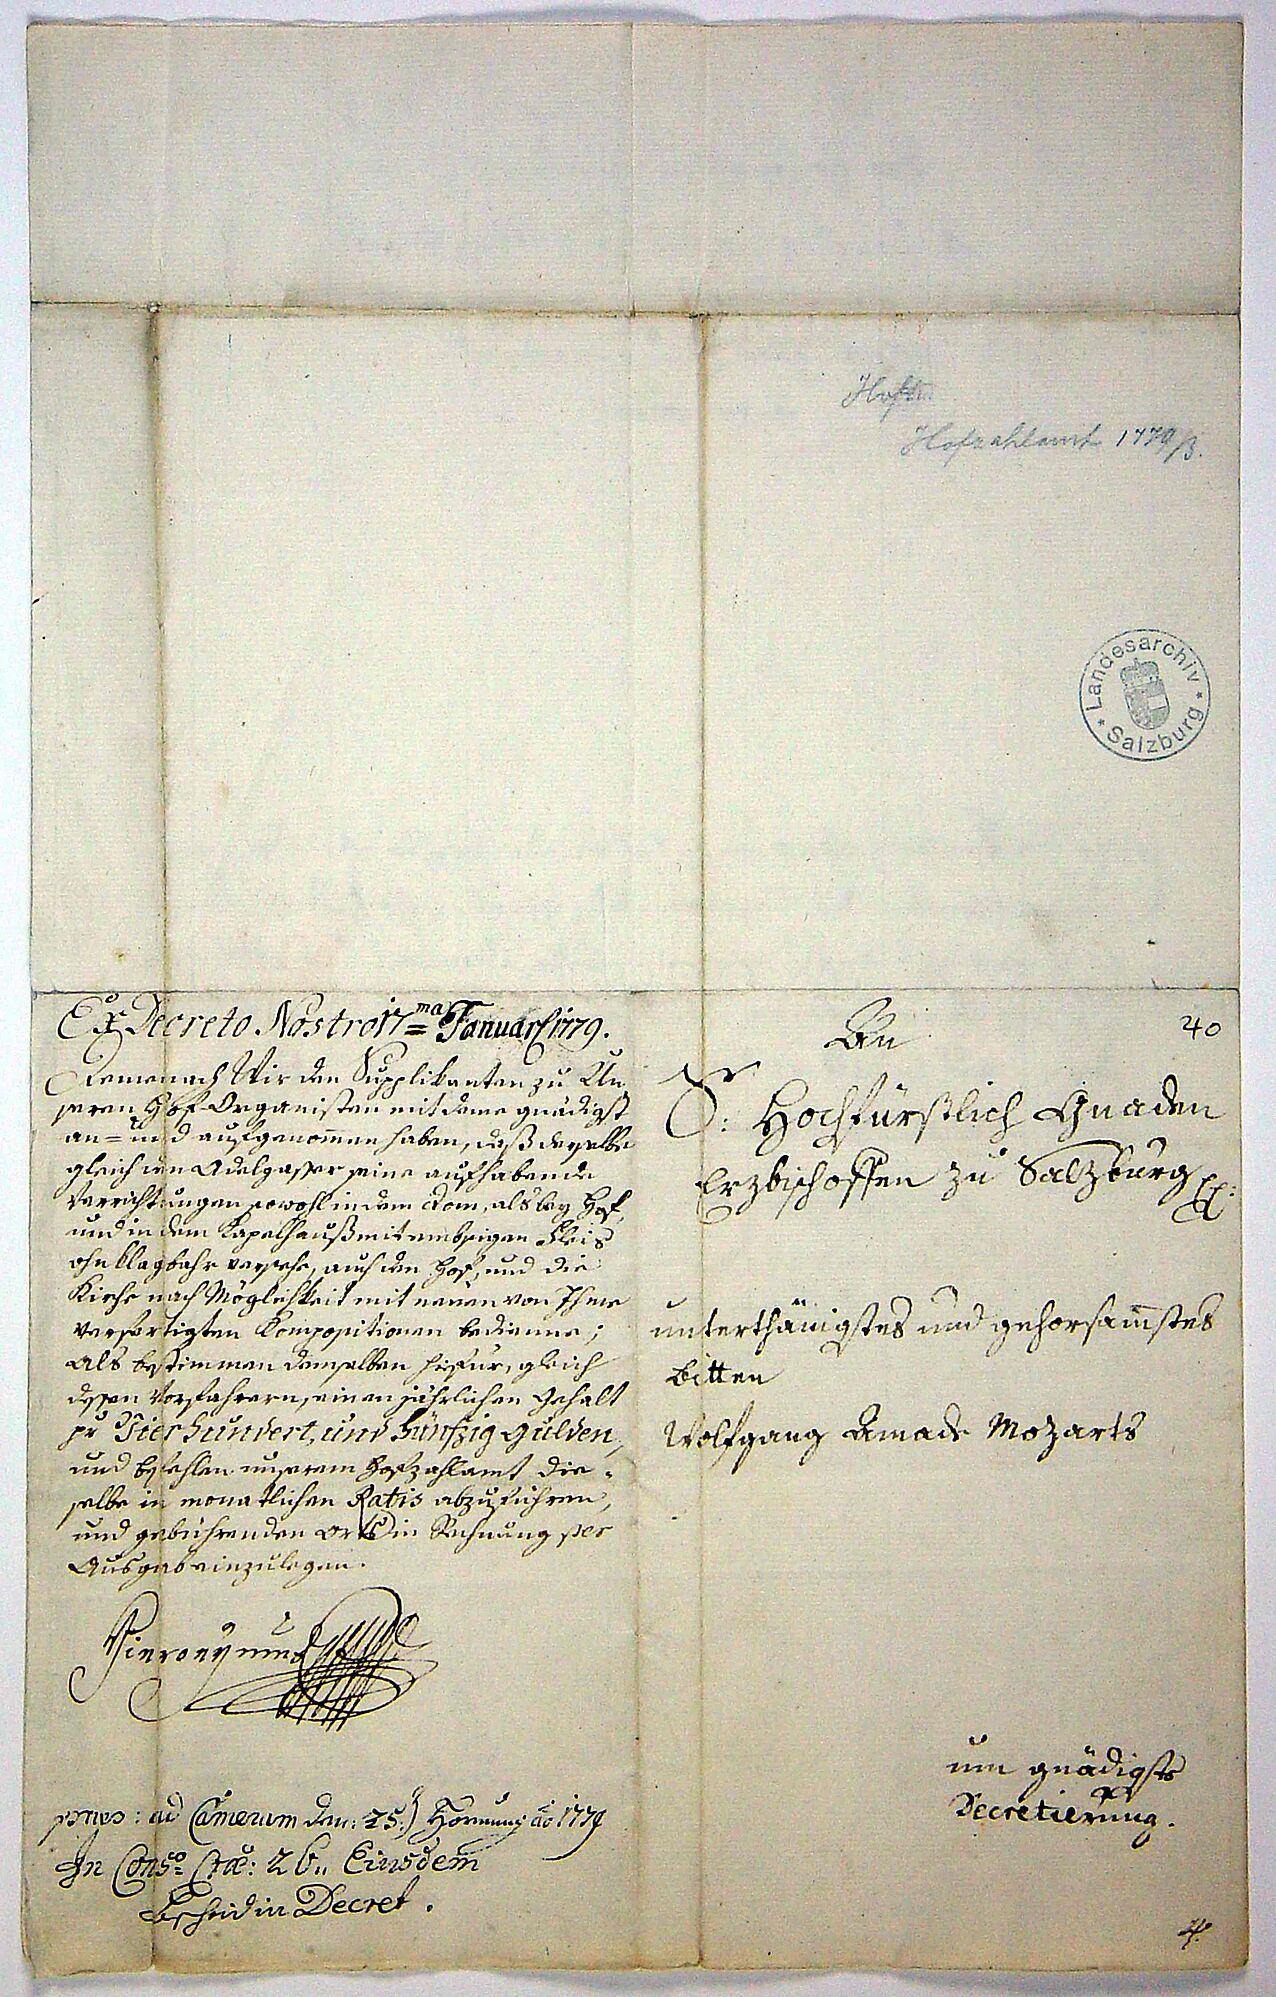 Hofzahlamt 1779/3.
* Landesarchiv *
Salzburg
Ex Decreto Nostro 17ma Januarii 1779.
Demenach Wir den Supplikanten zu Un
seren Hof-Organisten mit deme gnädigst
an= und aufgenom̅en haben, daß derselbe
gleich den Adelgasser seine aufhabende
Verrichtungen sowohl in dem Dom, als bey Hof,
und in dem Kapelhauß mit embsigen Fleis
ohnklagbahr versehe, auch den Hof, und die
Kirche nach Möglichkeit mit neuen von Ihme
verfertigten Kompositionen bediene;
Als bestimmen demselben hiefür, gleich
dessen Vorfahrern, einen jährlichen Gehalt
pr Vierhundert, und Fünfzig Gulden,
und befehlen unserem Hofzahlamt die=
selbe in monatlichen Ratis abzuführen,
und gebührenden Orts in Rechnung per
Ausgab einzulegen.
Hieronymus
ad Cameram den: 25.t Hornung ao 1779
In Conso Cræ: 26. Eiusdem
Bescheid in Decret.
An
40
S: Hochfürstlich Gnaden
Erzbischoffen zu Salzburg
unterthänigstes und gehorsam̅stes
Bitten
Wolfgang Amade Mozarts
um gnädigste
Decretierung.